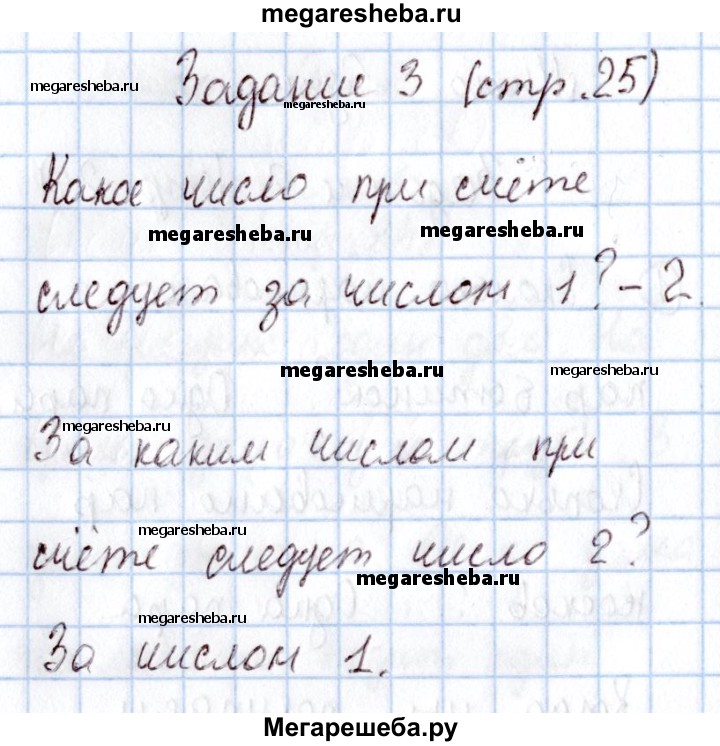 megaresheba.ru
Задание 3 (стр.25)
megaresheba.ru
megaresheba.ru
Какое число при счёте
megaresheba.ru
megaresheba.ru
следует за числом 1? - 2.
megaresheba.ru
megaresheba.ru
megaresheba.ru
За каким числом при
megaresheba.ru
счёте следует число 2?
megaresheba.ru
megaresheba.ru
За числом 1.
Мегарешеба.ру